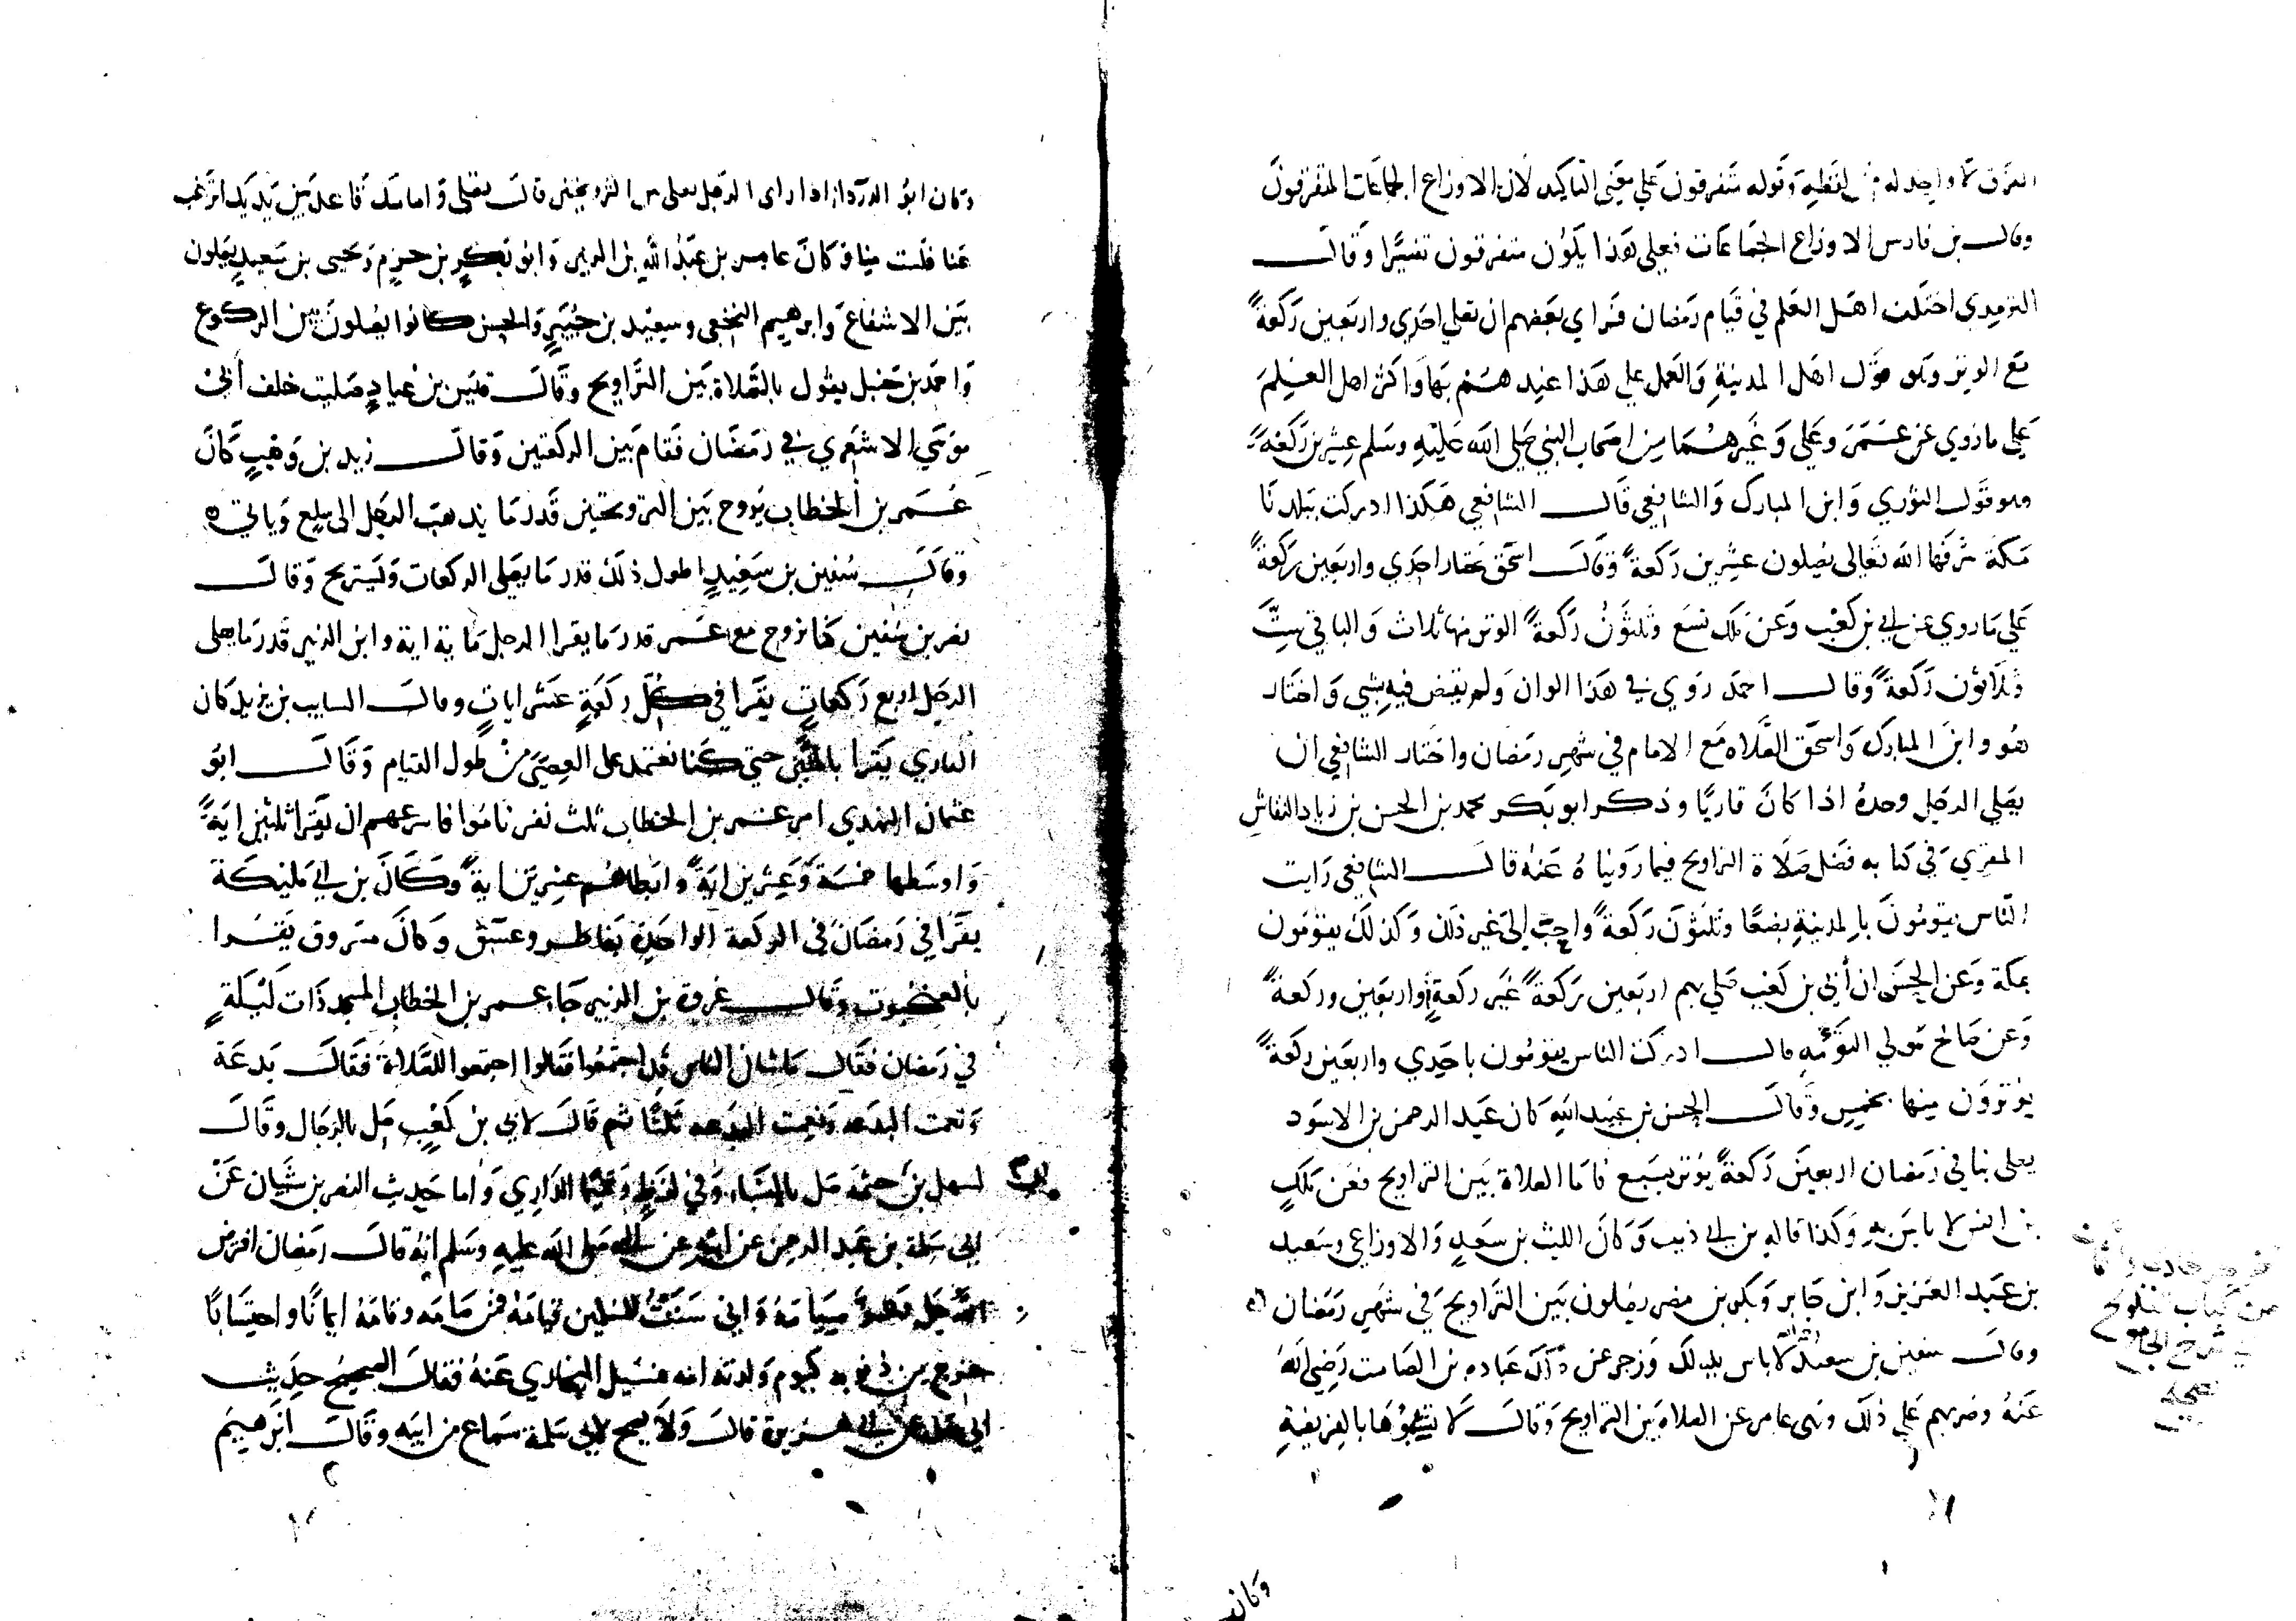 الفرق لا واحد له من لفظه وقوله متفرقون علي معني التاكيد لان الاوزاع الجماعات المتفرقون
وقال بن فارس الاوزاع الجماعات فعلي هذا يكون متفرقون تفسيرا وقال
الترمدي اختلف اهل العلم في قيام رمضان فراي بعضهم ان تصلي احدي واربعين ركعة
مع الوتر وهو قول اهل المدينة والعمل علي هذا عندهم بها واكثر اهل العلم
علي ما روي عن عمر وعلي وغيرهما من اصحاب النبي صلي الله عليه وسلم عشرين ركعة
وهو قول الثوري وابن المبارك والشافعي قال الشافعي هكذا ادركت ببلدنا
مكة شرفها الله تعالى يصلون عشرين ركعة وقال اسحق نختار احدي واربعين ركعة
علي ما روي عن ابي بن كعب وعن ملك تسع وثلثون ركعة الوتر منها ثلاث والباقي ست
وثلاثون ركعة وقال احمد روي في هذا الوان ولم يقض فيه بشي واختار
هو وابن المبارك واسحق الصلاه مع الامام في شهر رمضان واختار الشافعي ان
يصلي الرجل وحده اذا كان قاريا وذكر ابو بكر محمد بن الحسن بن زياد النقاش
المقري في كتابه فضل صلاة التراويح فيما رويناه عنه قال الشافعي رايت
الناس يقومون بالمدينة بضعا وثلثون ركعة واحب الي غير ذلك وكذلك يقومون
بمكة وعن الحسن ان أبي بن كعب صلي بهم اربعين ركعة غير ركعة او اربعين وركعة
وعن صالح مولي التومه قال ادركت الناس يقومون باحدي واربعين ركعة
يوترون منها بخمس وقال الحسن بن عبيد الله كان عبد الرحمن بن الاسود
يصلى بنا في رمضان اربعين ركعة يوتر بسبع فاما الصلاة بين التراويح فعن ملك
بن انس لا باس به وكذا قاله بن ابي ذيب وكان الليث بن سعد والاوزاعي وسعيد
بن عبد العزيز وابن جابر وبكر بن مضر يصلون بين التراويح في شهر رمضان
وقال سفين بن سعيد لا باس بذلك وزجر عن ذلك عباده بن الصامت رضي الله
عنه وضربهم علي ذلك ونهى عامر عن الصلاة بين التراويح وقال لا تشبهوها بالفريضة
من كتاب التلويح
شرح الجامع
وكان
وكان ابو الدردا اذا راى الرجل يصلى بين الترويحتين قال تصلى وامامك قاعد بين يديك اترغب
عنا فلست منا وكان عامر بن عبد الله بن الزبير وابو بكر بن حزم ويحيى بن سعيد يصلون
بين الاشفاع وابرهيم النخعي وسعيد بن جبير والحسن كانوا يصلون بين الركوع
واحمد بن حنبل يقول بالصلاة بين التراويح وقال قيس بن عباد صليت خلف أبي
موسي الاشعري في رمضان فقام بين الركعتين وقال زيد بن وهب كان
عمر بن الخطاب يروح بين الترويحتين قدر ما يذهب الرجل الى سلع وياتي
وقال سفين بن سعيد اطول ذلك قدر ما يصلى الركعات ويستريح وقال
نصر بن سفين كنا نروح مع عمر قدر ما يقرا الرجل ماية اية وابن الزبير قدر ما يصلى
الرجل اربع ركعات يقرا في كل ركعة عشر ايات وقال السايب بن يزيد كان
القاري يقرا بالمئين حتي كنا نعتمد على العصي من طول القيام وقال ابو
عثمان النهدي امر عمر بن الخطاب ثلث نفر ناموا فاسرعهم ان يقرا ثلثين اية
واوسطها خمسة وعشرين اية وابطاهم عشرين اية وكان بن ابي مليكة
يقرا في رمضان في الركعة الواحدة بفاطر وعسق وكان مسروق يقرا
بالعنكبوت وقال عروة بن الزبير جاء عمر بن الخطاب المسجد ذات ليلة
في رمضان فقال ما شان الناس قد اجتمعوا فقالوا اجتمعوا للصلاة فقال بدعة
ونعمت البدعه ونعمت البدعه ثلثا ثم قال لابي بن كعب صل بالرجال وقال
لسهل بن حثمه صل بالنساء وفي لفظ وتميما الداري واما حديث النضر بن شيبان عن
ابي سلمة بن عبد الرحمن عن ابيه عن النبي صلى الله عليه وسلم انه قال رمضان افترض
الله عز وجل صيامه واني سننت للمسلمين قيامه فمن صامه وقامه ايمانا واحتسابا
خرج من ذنوبه كيوم ولدته امه فسيل البخاري عنه فقال الصحيح حديث
ابي سلمة عن ابي هريرة قال ولا يصح لابي سلمة سماع من ابيه وقال ابرهيم